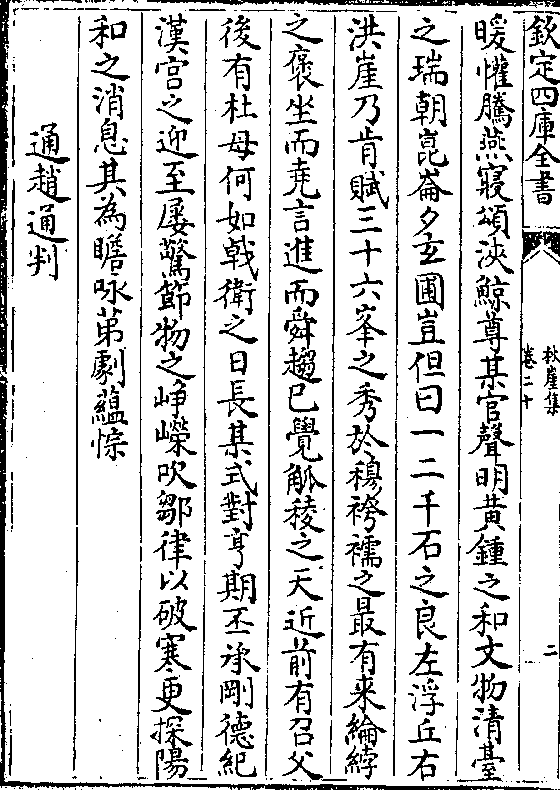 欽定四庫全書
秋崖集
卷二十
二
暖懽騰燕寢頌浹鯨尊某官聲明黄鍾之和文物清臺
之瑞朝崑崙夕玄圃豈但曰一二千石之良左浮丘右
洪崖乃肯賦三十六峯之秀於穆袴襦之最有来綸綍
之褒坐而堯言進而舜趨已覺觚稜之天近前有召父
後有杜母何如㦸衛之日長某式對亨期丕承剛德紀
漢宫之迎至屢驚節物之崢嶸吹鄒律以破寒更探陽
和之消息其為瞻咏苐劇蘊悰
通趙通判